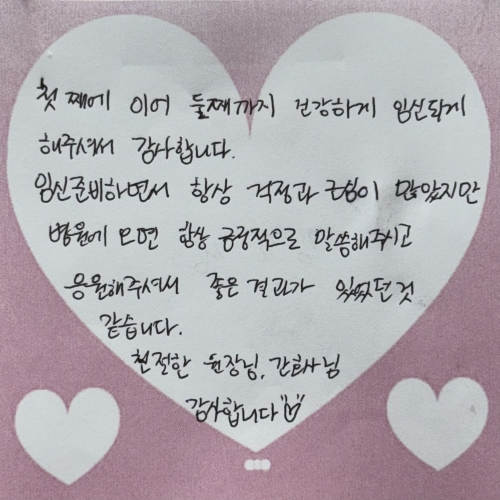 첫 째에 이어 둘째까지 건강하게 임신되게
해주셔서 감사합니다.
임신준비하면서 항상 걱정과 근심이 많았지만
병원에 오면 항상 긍정적으로 말씀해주시고
응원해주셔서 좋은 결과가 있었던것
같습니다.
친절한 원장님, 간호사님
감사합니다